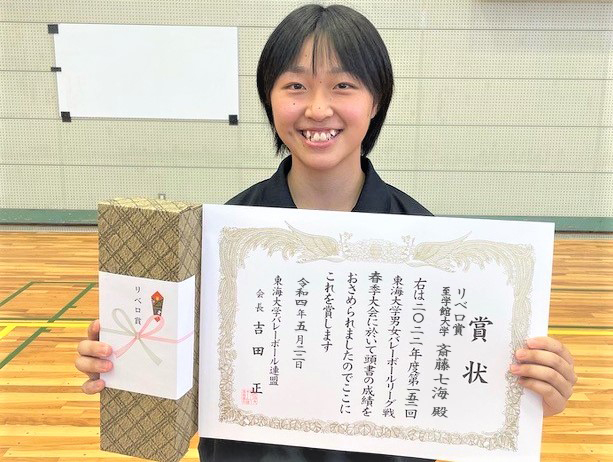 賞状
リベロ賞
至学館大学 斎藤七海 殿
右は二〇二二年度第一五三回
東海大学男女バレーボールリーグ戦
春季大会に於いて頭書の成績を
おさめられましたのでここに
これを賞します
令和四年五月二二日
東海大学バレーボール連盟
会長 吉田 正
リベロ賞